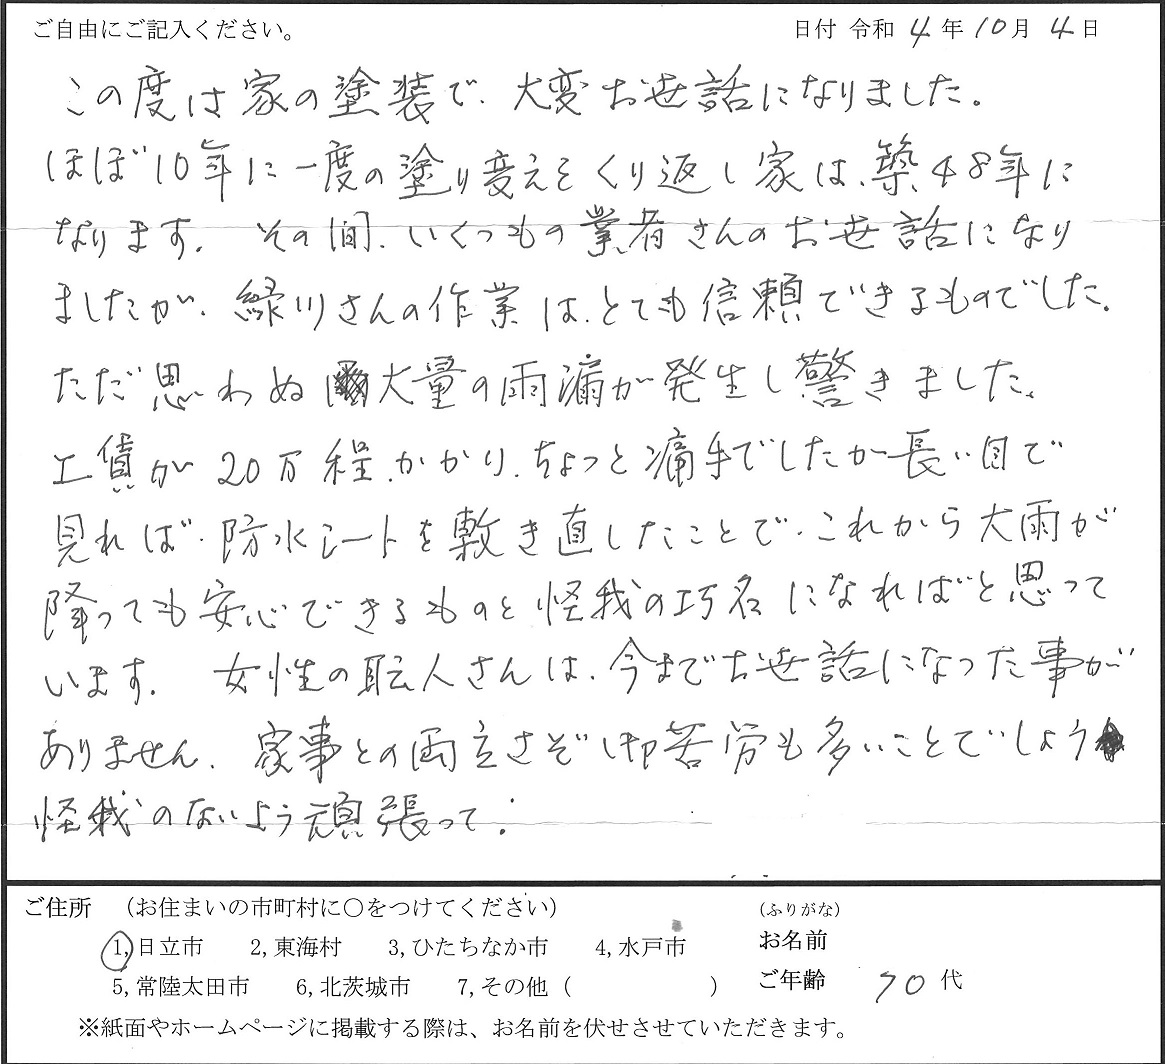 ご自由にご記入ください。 日付 令和 4 年 10 月 4 日
この度は家の塗装で、大変お世話になりました。
ほぼ10年に一度の塗り変えをくり返し家は、築48年に
なります。その間、いくつもの業者さんのお世話になり
ましたが、緑川さんの作業は、とても信頼できるものでした。
ただ思わぬ大量の雨漏が発生し驚きました。
工賃が20万程かかり、ちょっと痛手でしたが長い目で
見れば、防水シートを敷き直したことで、これから大雨が
降っても安心できるものと怪我の巧名になればと思って
います。 女性の職人さんは、今までお世話になった事が
ありません、家事との両立さぞし御苦労も多いことでしょう
怪我のないよう頑張って!
ご住所 (お住まいの市町村に〇をつけてください) (ふりがな)
1,日立市 2,東海村 3,ひたちなか市 4,水戸市 お名前
5,常陸太田市 6,北茨城市 7,その他( ) ご年齢 70 代
※紙面やホームページに掲載する際は、お名前を伏せさせていただきます。